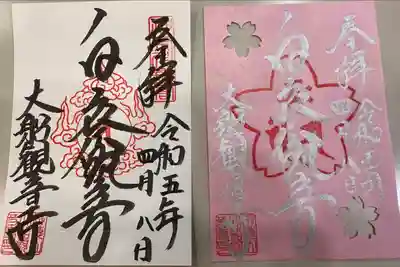 奉拝
令和五年
四月八日
白衣観音
大船觀音寺
奉拝
令和五年
白衣観音
大船觀音寺